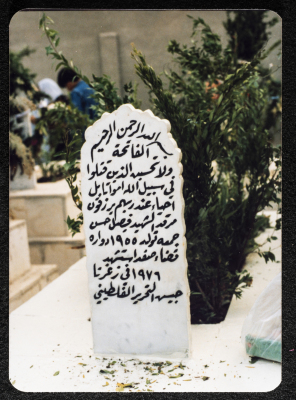 الله الرحمن الرحيم
الفاتحة
ولا تحسبن الذين قتلوا
في سبيل الله امواتا بل
احياء عند ربهم يرزقون
مرقد الشهيد فضل حسن
جمعه تولد ١٩٥٥ دواره
قضاء صفد استشهد
١٩٧٦ في زغرتا
جيش التحرير الفلسطيني